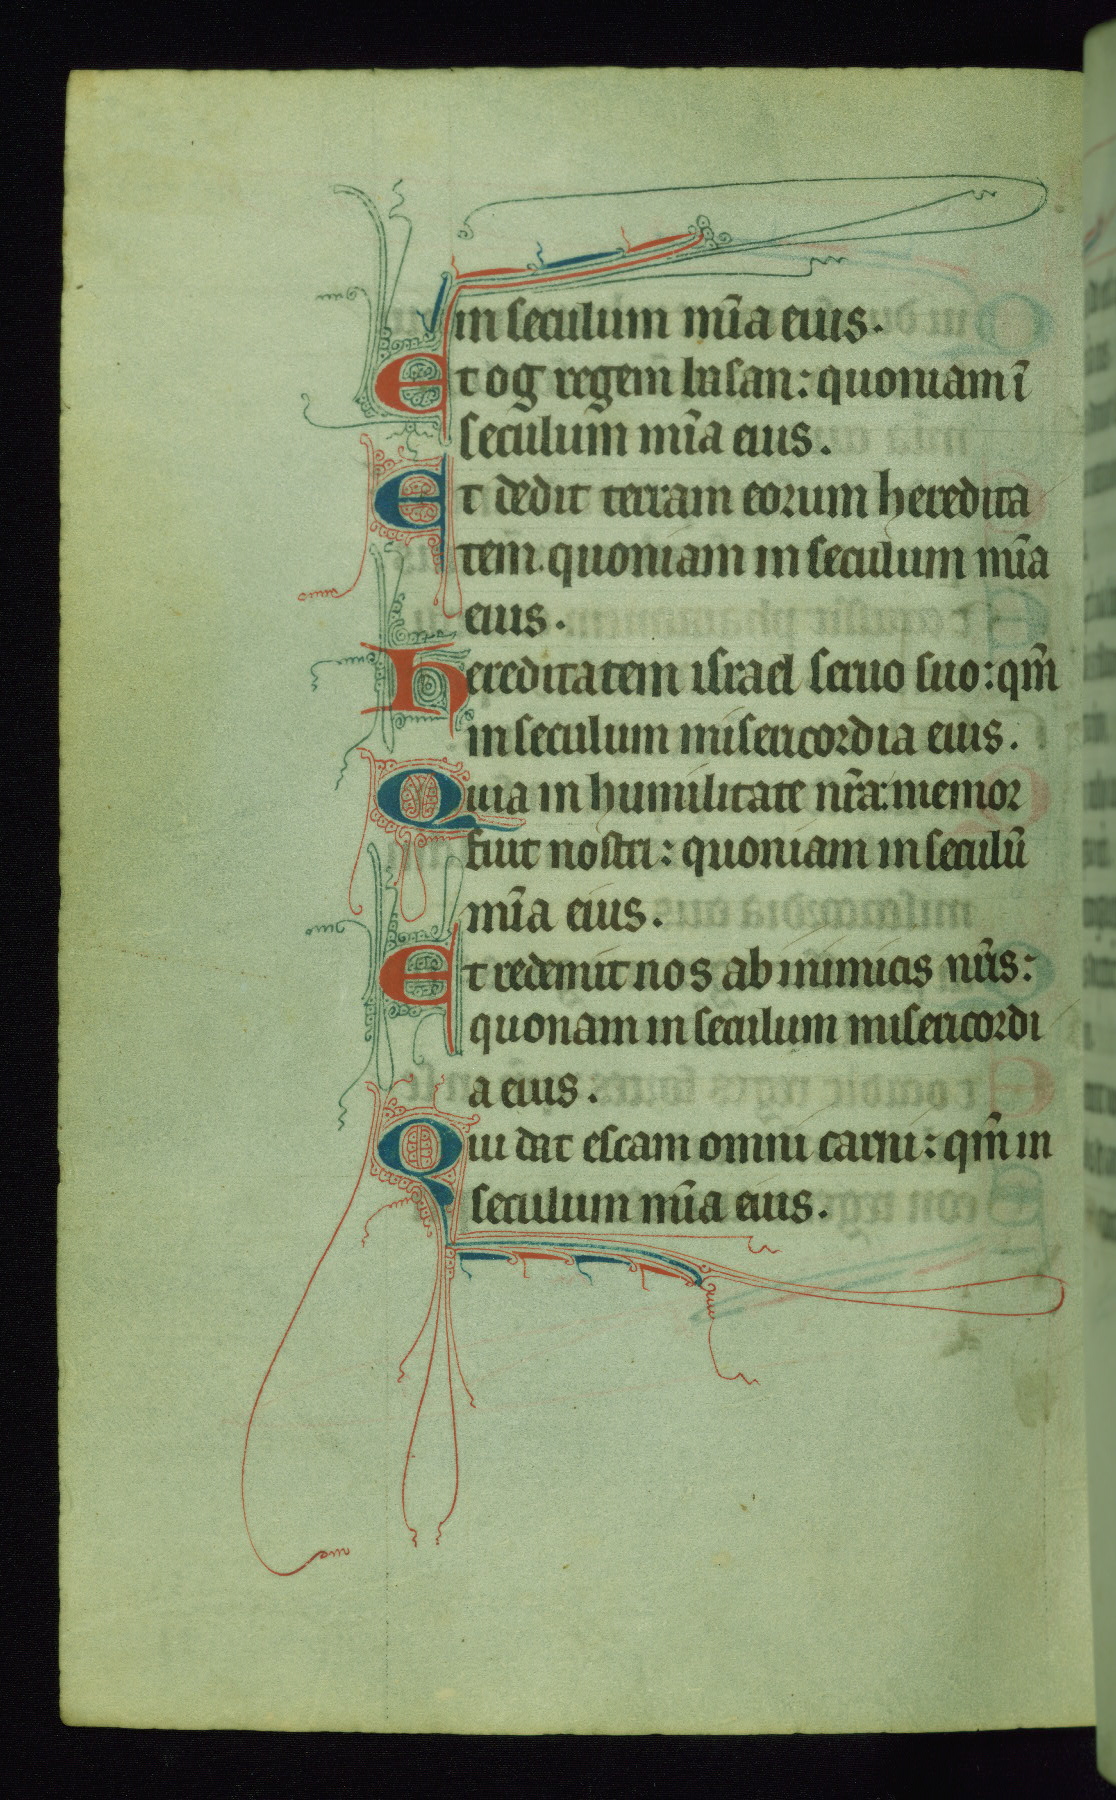 in seculum mĩa eius.
Et og regem basan: quoniam ĩ
seculum mĩa eius.
Et dedit terram eorum heredita
tem. quoniam in seculum mĩa
eius.
hereditatem israel seruo suo: qm̃
in seculum misericordia eius.
Quia in humilitate nr̃a: memor
fuit nostri: quoniam in seculũ
mĩa eius.
Et redemit nos ab inimicis nr̃is:
quonam in seculum misericordi
a eius.
Qui dat escam omni carni: qm̃ in
seculum mĩa eius.